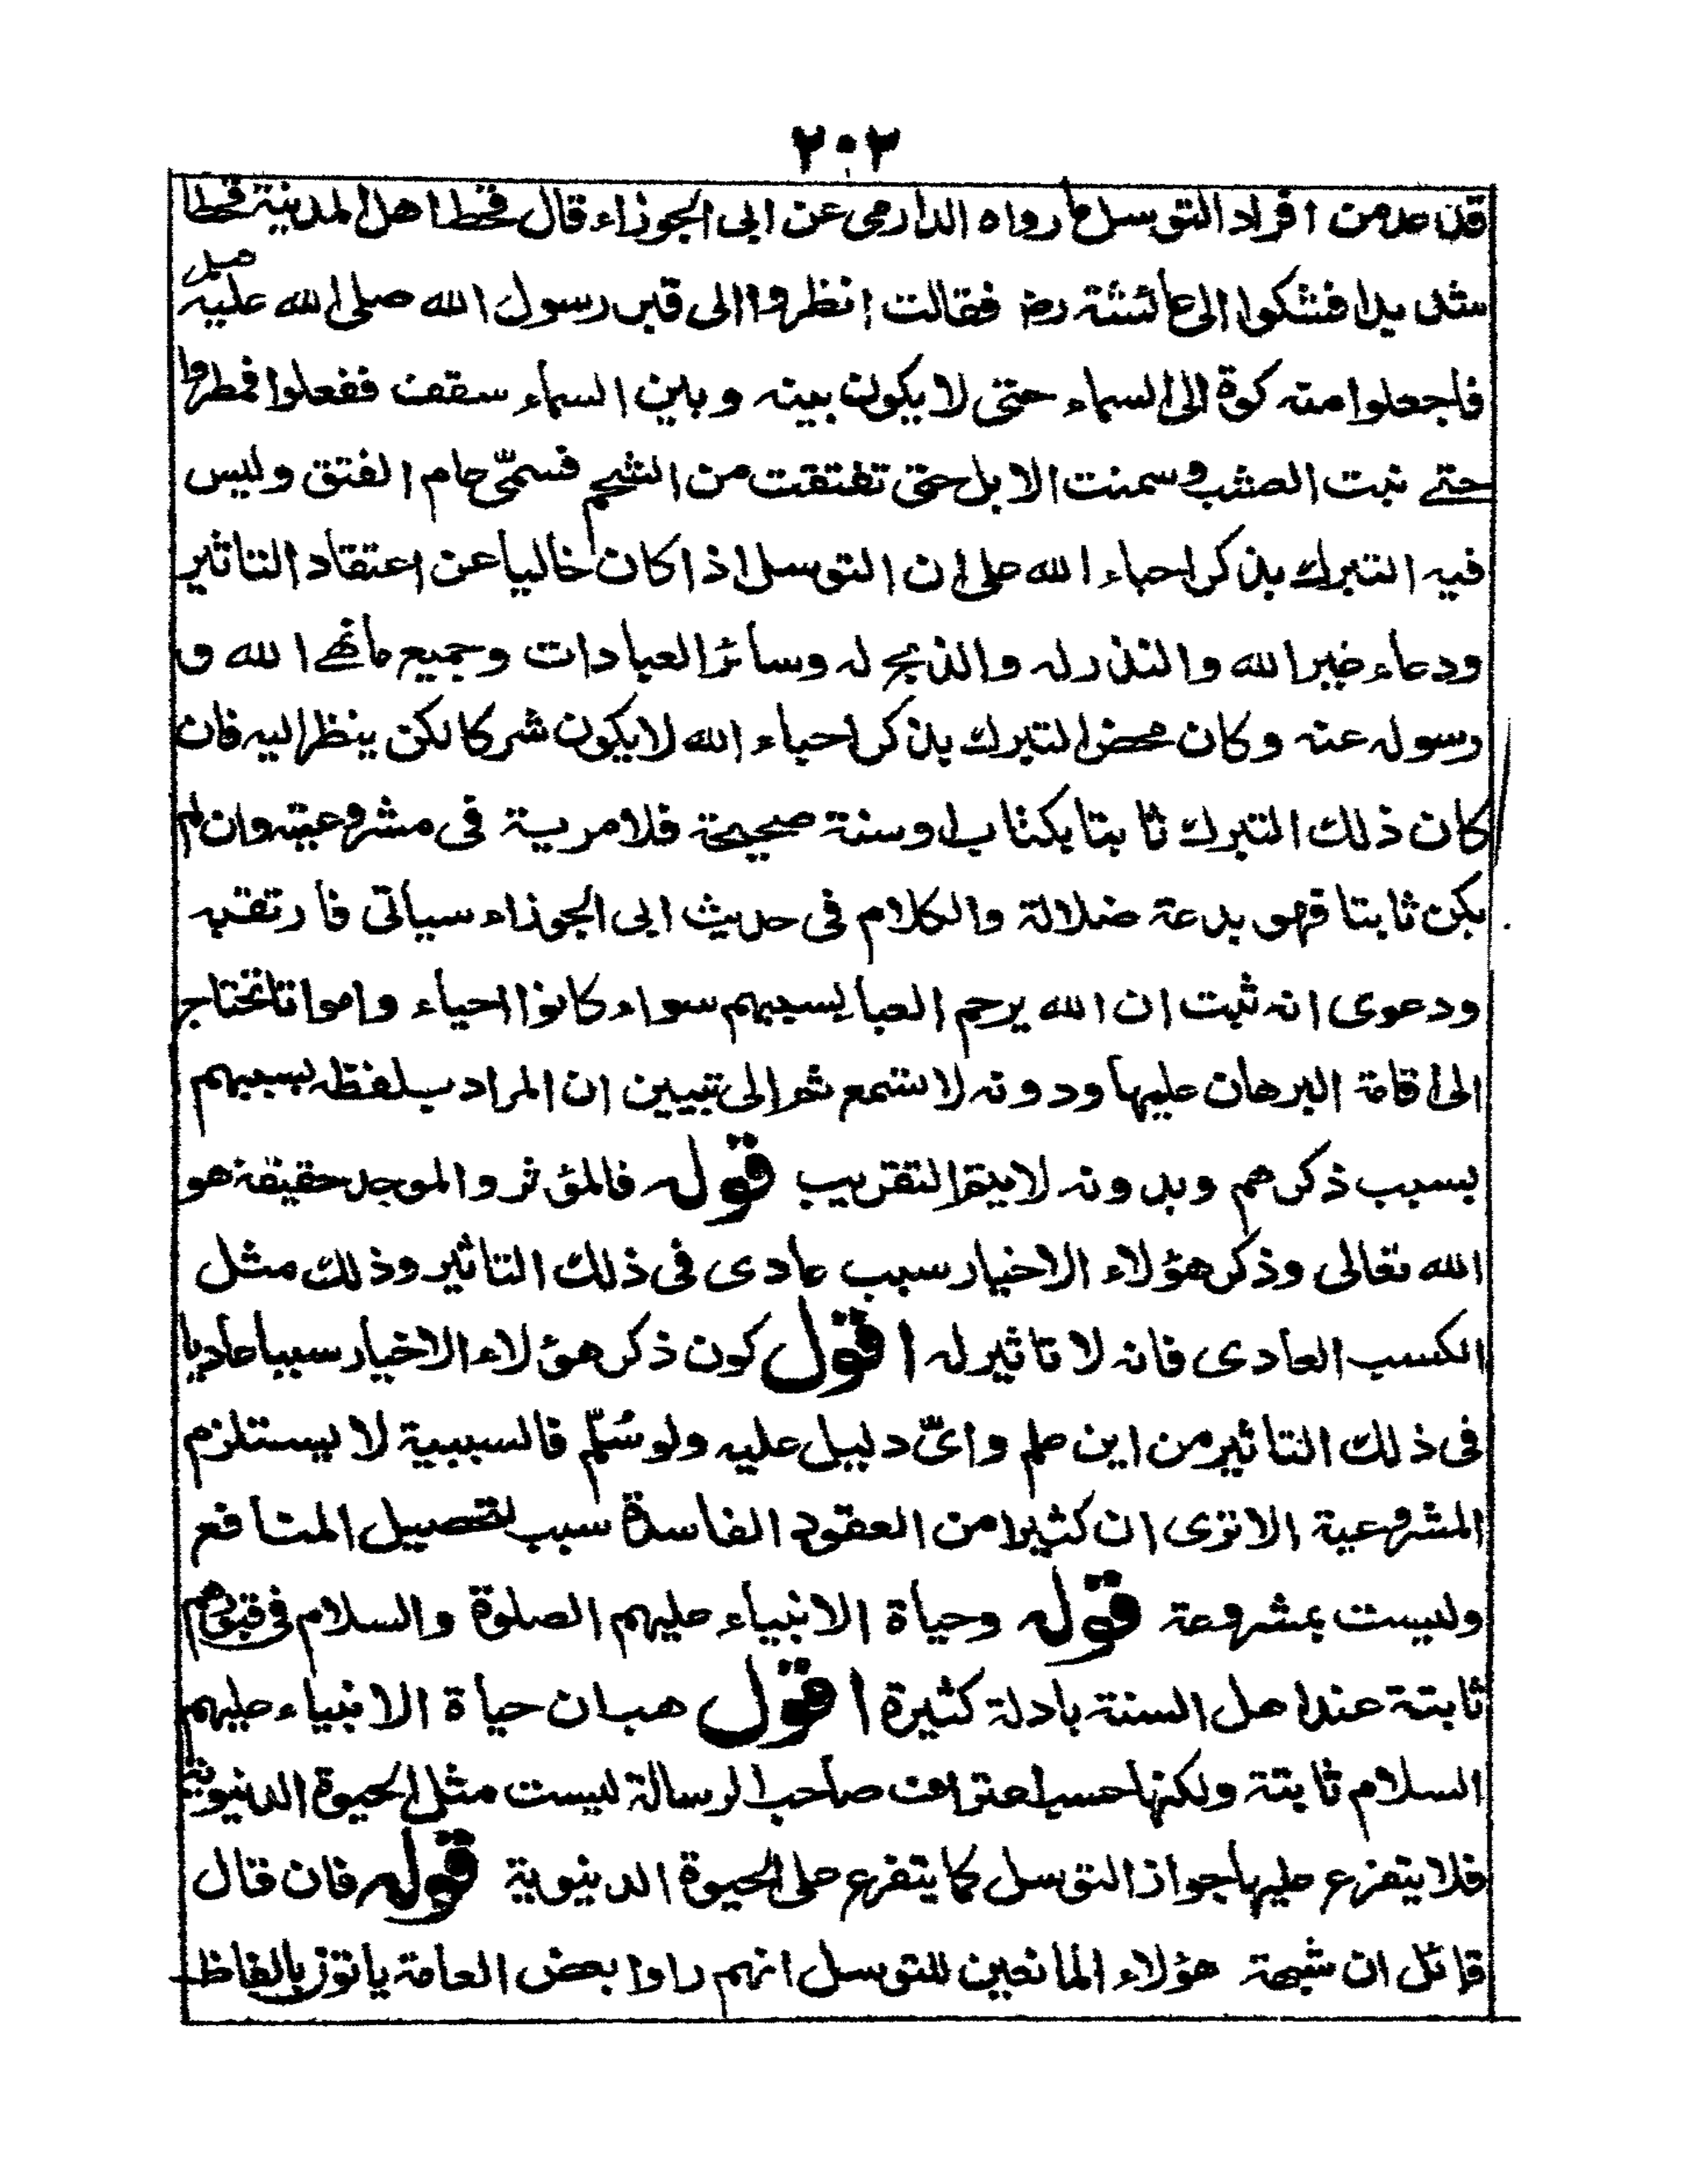 ٢٠٣
قد عد من افراد التوسل ما رواه الدارمى عن ابى الجوزاء قال قحط اهل المدينة قحطا
شديدا فشكوا الى عائشة رض فقالت انظروا الى قبر رسول الله صلى الله عليه
فاجعلوا منه كوة الى السماء حتى لا يكون بينه وبين السماء سقف ففعلوا فمطروا
حتے نبت العشب وسمنت الابل حتى تفتقت من الشحم فسمّى عام الفتق وليس
فيه التبرك بذكر احباء الله على ان التوسل اذا كان خاليا عن اعتقاد التاثير
ودعاء غير الله والنذر له والذبح له وسائر العبادات وجميع ما نهے الله و
رسوله عنه وكان محض التبرك بذكر احباء الله لا يكون شركا لكن ينظر اليه فان
كان ذلك التبرك ثابتا بكتاب او سنة صحيحة فلا مرية فى مشروعيته وان لم
يكن ثابتا فهو بدعة ضلالة والكلام فى حديث ابى الجوزاء سياتى فارتقبه
ودعوى انه ثبت ان الله يرحم العبا بسببهم سواء كانوا احياء وامواتا تحتاج
الى اقامة البرهان عليها ودونه لا تسمع ثم الى تبيين ان المراد بلفظه بسببهم
بسبب ذكرهم وبدونه لا يتم التقريب قوله فالمؤثر والموجد حقيقة هو
الله تعالى وذكر هؤلاء الاخيار سبب عادى فى ذلك التاثير وذلك مثل
الكسب العادى فانه لا تاثير له اقول كون ذكر هؤلاء الاخيار سببا عاديا
فى ذلك التاثير من اين علم واىّ دليل عليه ولو سُلّم فالسببية لا يستلزم
المشروعية الا ترى ان كثيرا من العقود الفاسدة سبب لتحصيل المنافع
وليست بمشروعة قوله وحياة الانبياء عليهم الصلوة والسلام فى قبورهم
ثابتة عند اهل السنة بادلة كثيرة اقول هب ان حياة الانبياء عليهم
السلام ثابتة ولكنها حسب اعتراف صاحب الرسالة ليست مثل الحيوة الدنيوية
فلا يتفرع عليها جواز التوسل كما يتفرع على الحيوة الدنيوية قوله فان قال
قائل ان شبهة هؤلاء المانعين للتوسل انهم راوا بعض العامة ياتون بالفاظ